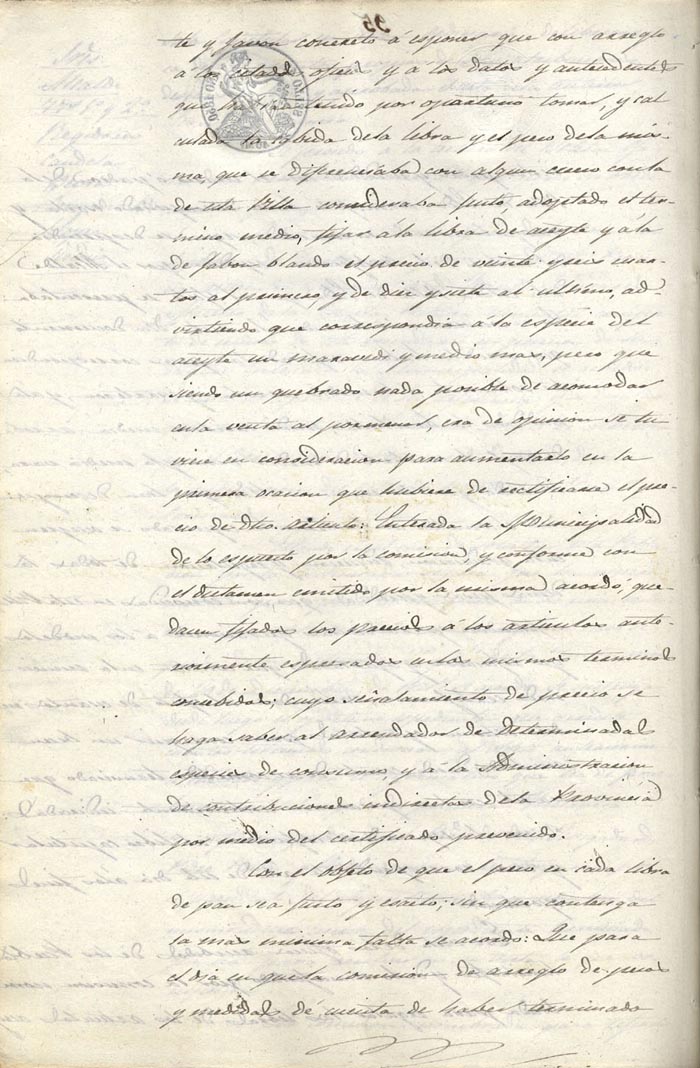 te y Javon concreto á esponer que con arreglo
á los citados oficios y á los datos y antecedentes
que ha tenido por oportuno tomar, y cal
culada la subida de la libra y el peso de la mis
ma que se diferenciaba con algun esceso con la
de esta Villa consideraba justo, adoptado el ter
mino medio, fijar á la libra de aceyte y á la
de Jabon blando el precio de veinte y seis cuar
tos al primero, y de diez y siete al ultimo, ad-
virtiendo que correspondia á la especie del
aceyte un maravedi y medio mas, pero que
siendo un quebrado nada posible de acomodar
en la venta al pormenor, era de opinion se tu
viese en consideracion para aumentarlo en la
primera ocasion que hubiese de rectificarse el pre
cio de dho. articulo: Enterada la Municipalidad
de lo espuesto por la comision, y conforme con
el dictamen emitido por la misma acordo, que-
dasen fijados los precios á los articulos ante-
riormente espresados en los mismos terminos
concebidos; cuyo señalamiento de precio se
haga saber al arrendador de determinadas
especies de consumo, y á la Administracion
de contribuciones indirectas de la Provincia
por medio del certificado prevenido.
Con el objeto de que el peso en cada libra
de pan sea justo y esacto; sin que contenga
la mas minima falta se acordo: Que para
el dia en que la comision de arreglo de pesos
y medidas dé cuenta de haber terminado